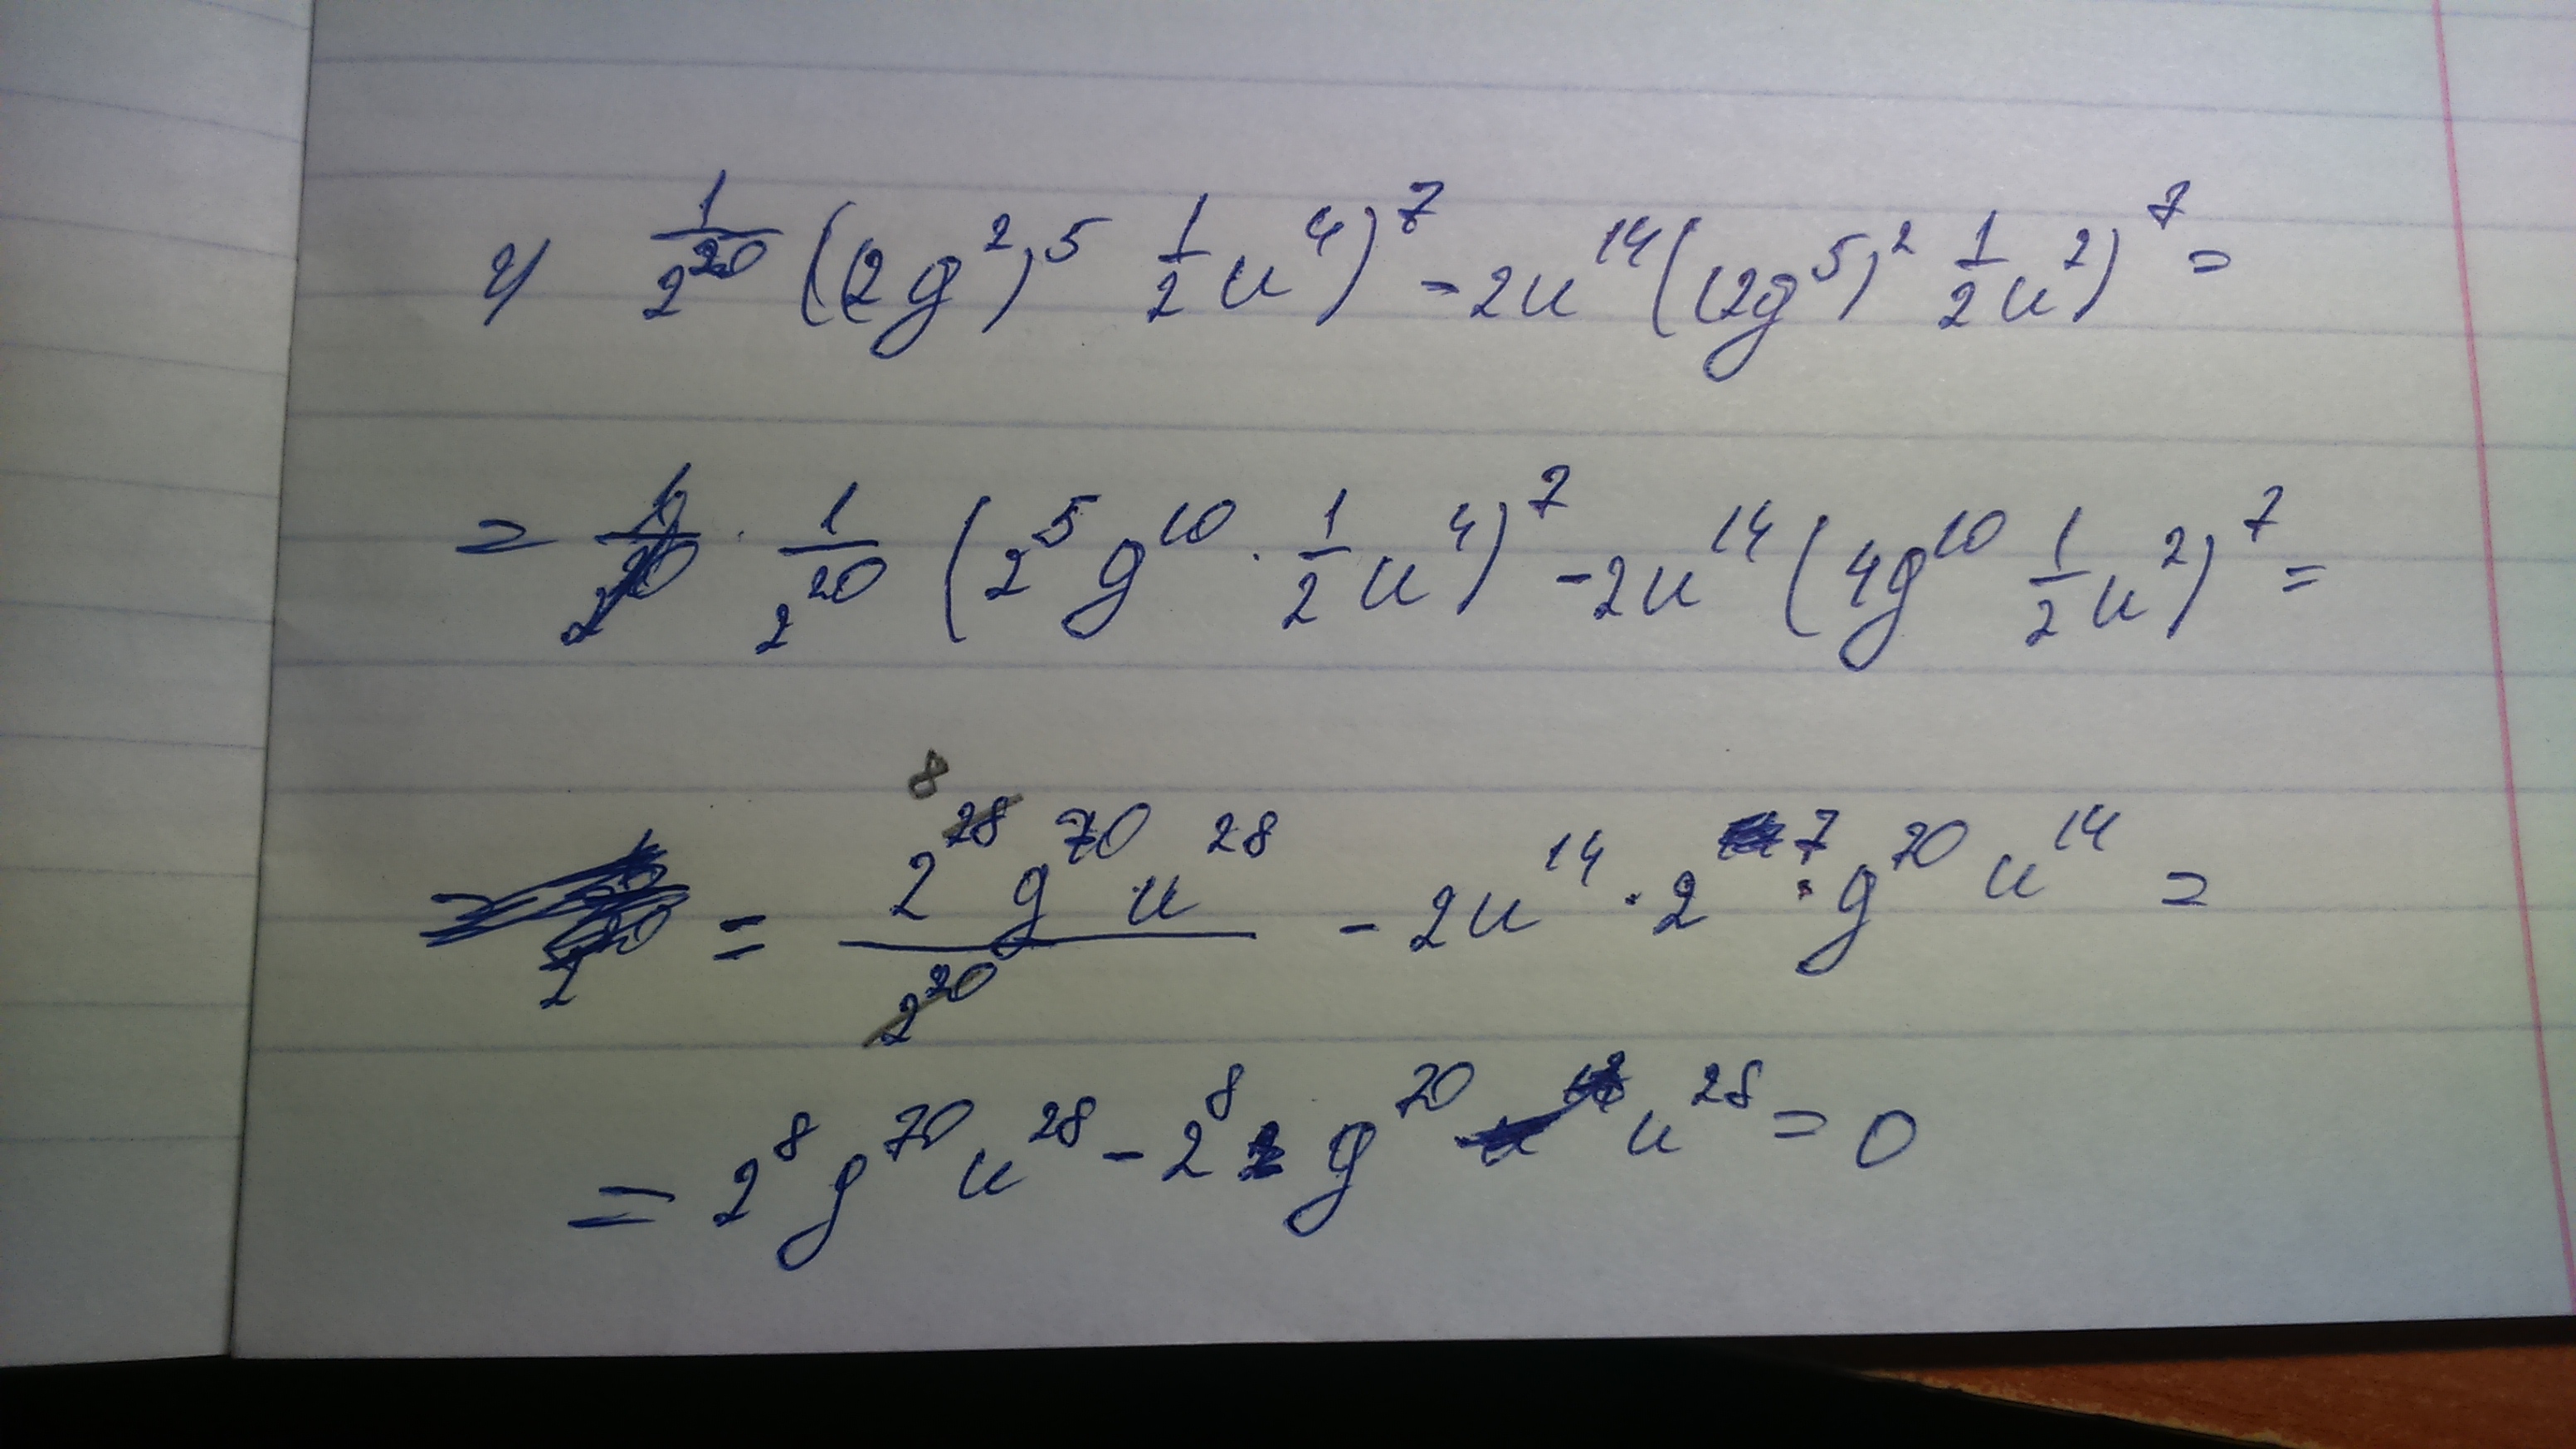 4) 1/2^20 ((2g^2)^5 1/2 u^4)^7 - 2u^14 ((2g^5)^2 1/2 u^2)^7 =
= · 1/2^20 (2^5 g^10 · 1/2 u^4)^7 - 2u^14 (4g^10 1/2 u^2)^7 =
= 2^28 8 g^70 u^28 / 2^20 - 2u^14 · 2^7 · g^70 u^14 =
= 2^8 g^70 u^28 - 2^8 g^70 u^28 = 0